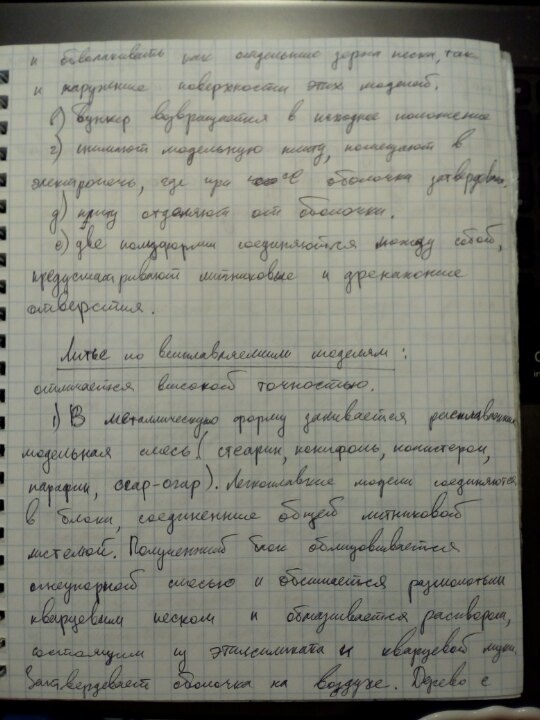 и обволакивать как отдельные зерна песка, так
и наружные поверхности этих моделей.
в) Бункер возвращается в исходное положение
г) снимают модельную плиту, помещают в
электропечь, где при °C оболочка затвердев.
д) плиту отделяют от оболочки.
е) две полуформы соединяются между собой,
предусматривают литниковые и дренажные
отверстия.
Литье по выплавляемым моделям:
отличается высокой точностью.
1) В металлическую форму заливается расплавленная
модельная смесь (стеарин, канифоль,
парафин, ). Легкоплавкие модели соединяются
в блоки, соединенные общей литниковой
системой. Полученный блок облицовывается
огнеупорной смесью и обсыпается размолотым
кварцевым песком и обмазывается раствором,
состоящим из этилсиликата и кварцевой муки.
Затвердевает оболочка на воздухе. Дерево с